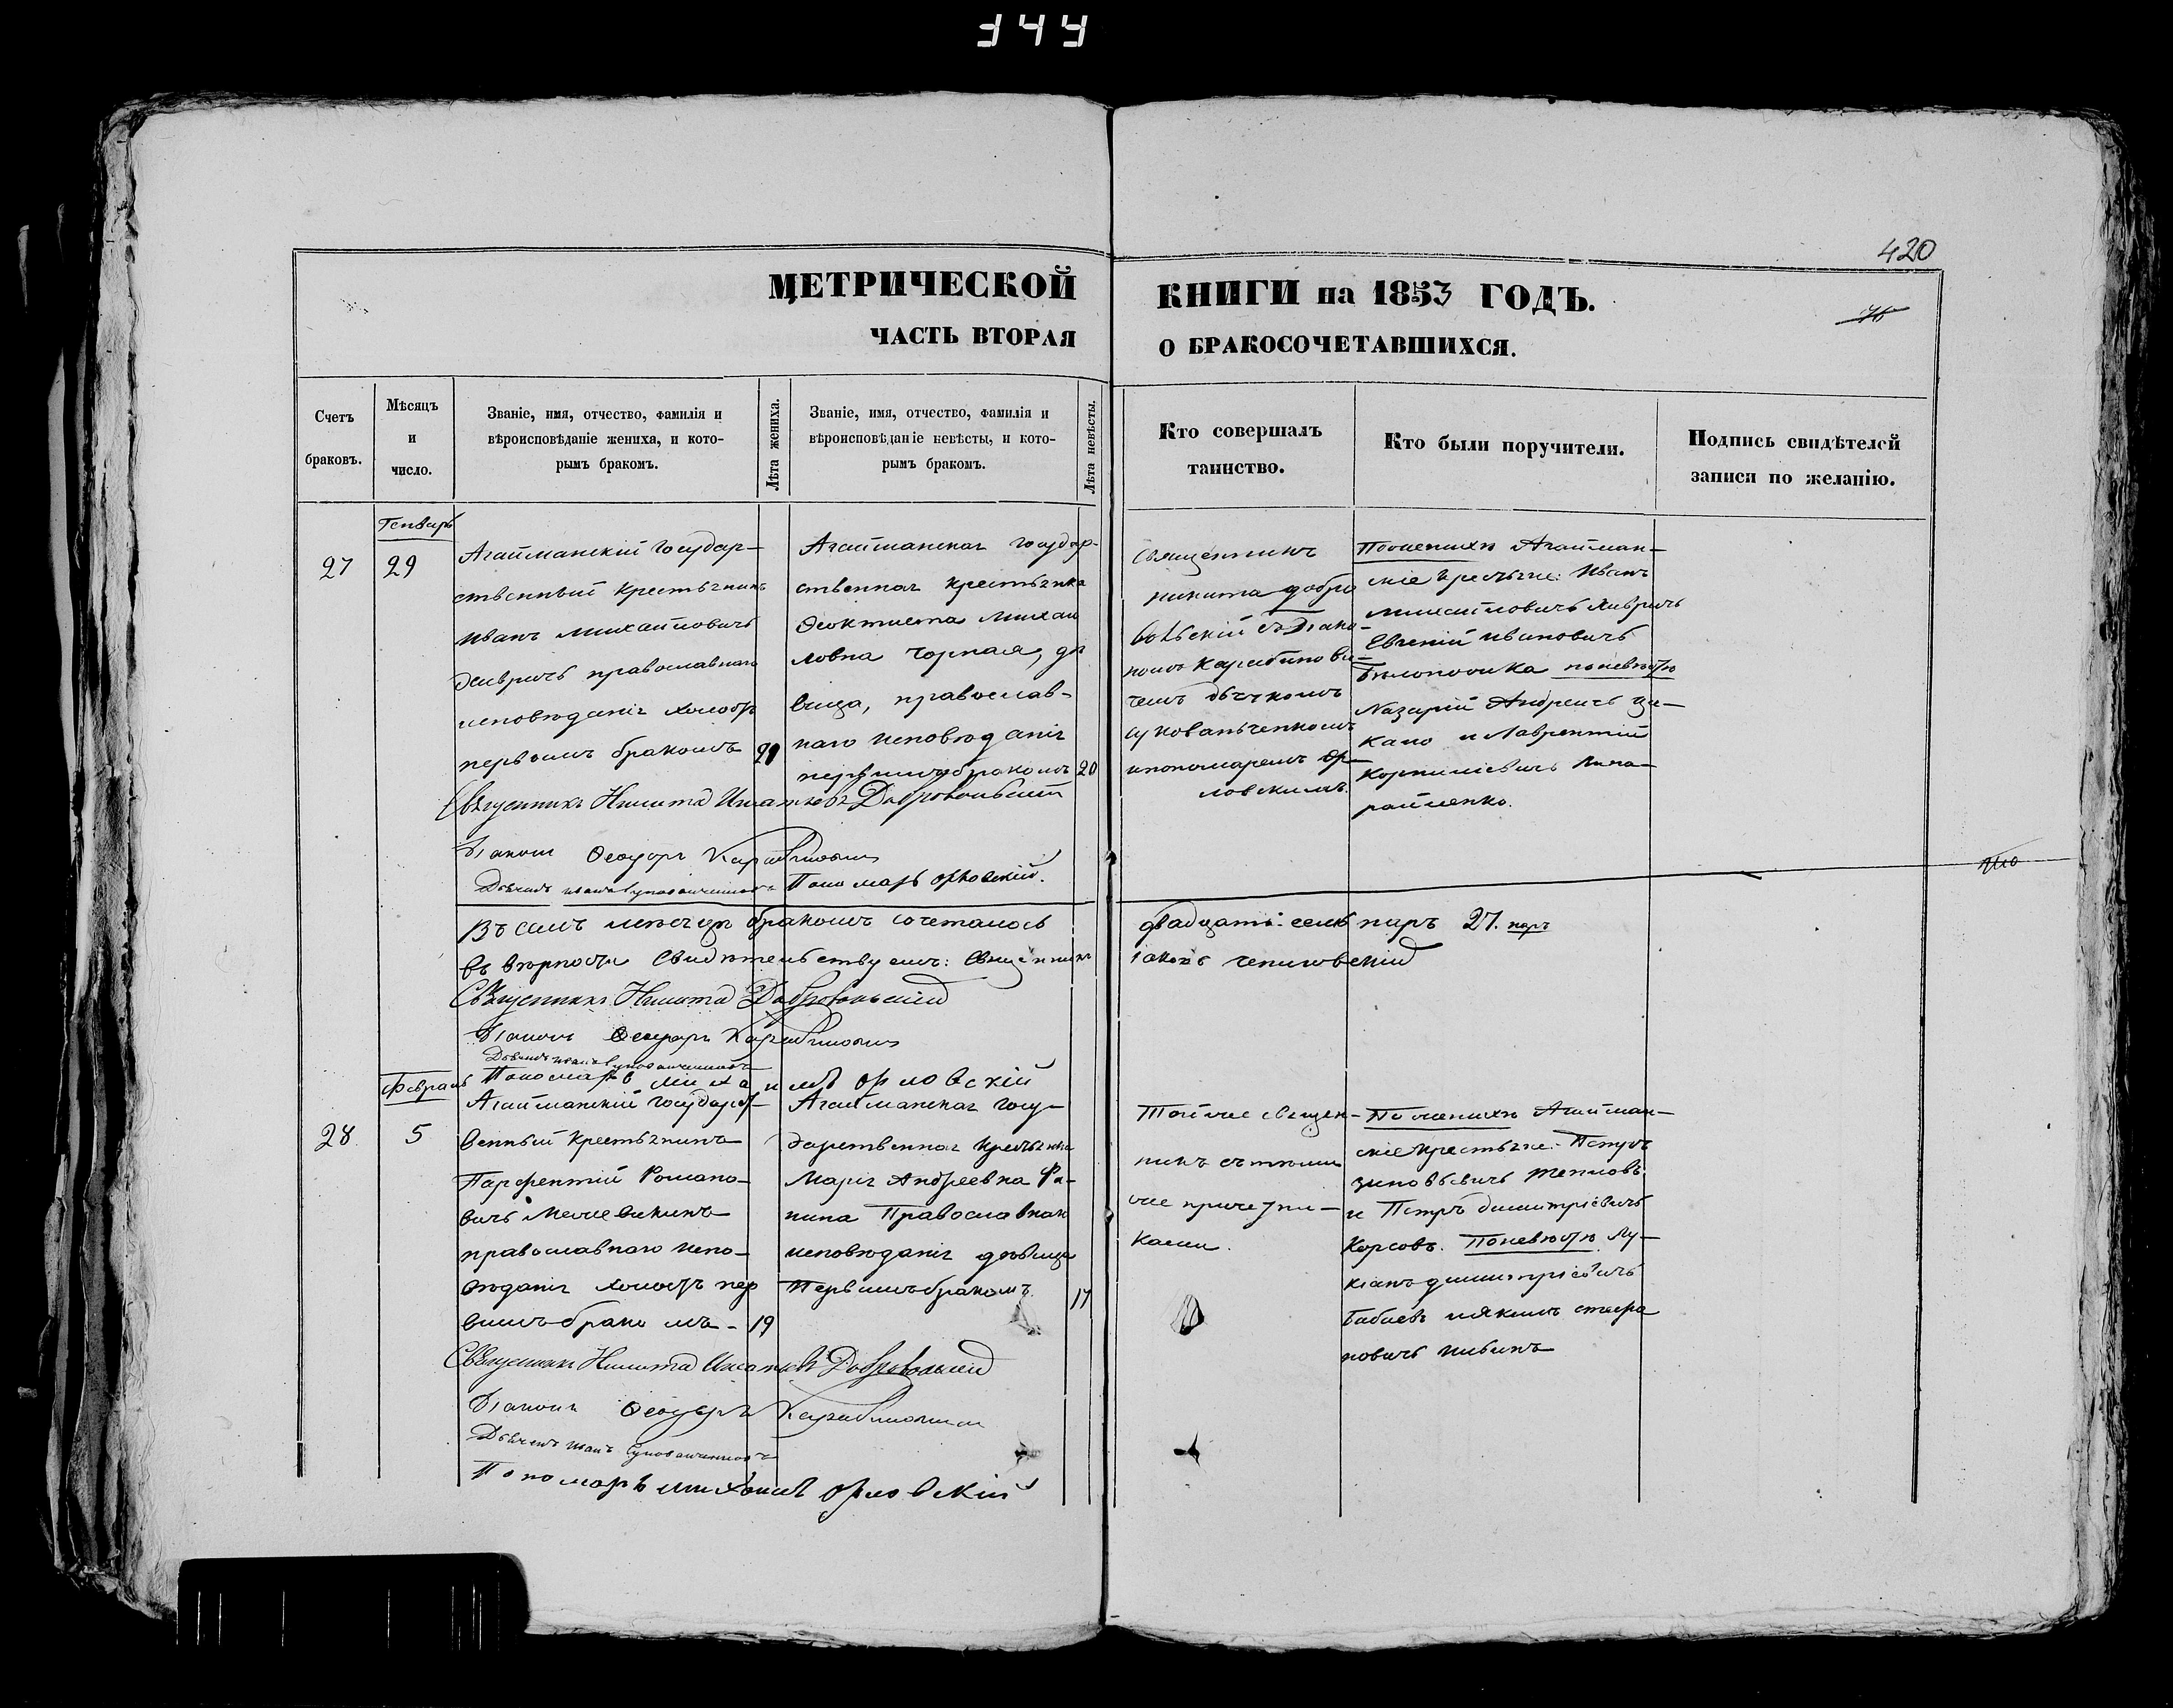 344
420
МЕТРИЧЕСКОЙ
ЧАСТЬ ВТОРАЯ
КНИГИ на 1853 ГОДЪ.
О БРАКОСОЧЕТАВШИХСЯ.
76
Счетъ
браковъ.
Мѣсяцъ
и
число.
Званіе, имя, отчество, фамилія и
вѣроисповѣданіе жениха, и кото-
рымъ бракомъ.
Лѣта жениха.
Званіе, имя, отчество, фамилія и
вѣроисповѣданіе невѣсты, и кото-
рымъ бракомъ.
Лѣта невѣсты.
Кто совершалъ
таинство.
Кто были поручители.
Подпись свидѣтелей
записи по желанію.
27
Генварь
29
Агайманскій Государ-
ственный крестьянинъ
Иванъ Михайловичъ
православнаго
исповѣданія холостъ
первымъ бракомъ
Агайманская государ-
ственная крестьянка
Феоктиста Михаи
ловна Чорная, дѣ
вица, православ-
наго исповѣданія
первымъ бракомъ 20
Священникъ
Никита Добро
вольскій съ Діако-
номъ Карабинови-
чемъ дьячкомъ
ипономаремъ Ор-
ловскимъ.
По женихѣ Агайман-
скіе крестьяне: Иванъ
Михайловичъ
Евгеній Ивановичъ
по невѣстѣ
Назарій Андреевъ
и Лаврентій
Корниліевичъ
Священникъ Никита Добровольскій
Діаконъ Феодоръ Карабиновичъ
Дьячекъ Иванъ
Пономарь Орловскій.
Въ семъ мѣсяцѣ бракомъ сочеталось
двадцать семь паръ 27. паръ
въ вѣрности свидѣтельствуемъ: Священникъ
Іаковъ
Священникъ Никита Добровольскій
Діаконъ Феодоръ Карабиновичъ
Дьячекъ Иванъ
Пономарь Михаилъ Орловскій
28
Февраль
5
Агайманскій государст-
венный крестьянинъ
Парфентій Романо-
вичъ
православнаго испо-
вѣданія холостъ пер
вымъ бракомъ - 19
Агайманская госу-
дарственная крестьянка
Марія Андреевна Фа-
нина Православнаго
исповѣданія дѣвица
Первымъ бракомъ. 17
Тойже священ-
никъ съ тѣми
же причетни-
ками.
По женихѣ Агайман-
скіе крестьяне: Петръ
Зиновьевичъ Тепловъ
и Петръ Димитріевичъ
Корсовъ. По невѣстѣ Лу-
кіанъ Димитріевичъ
Бабаевъ и Якимъ Стефа
новичъ
Священникъ Никита Добровольскій
Діаконъ Феодоръ Карабиновичъ
Дьячекъ Иванъ
Пономарь Михаилъ Орловскій